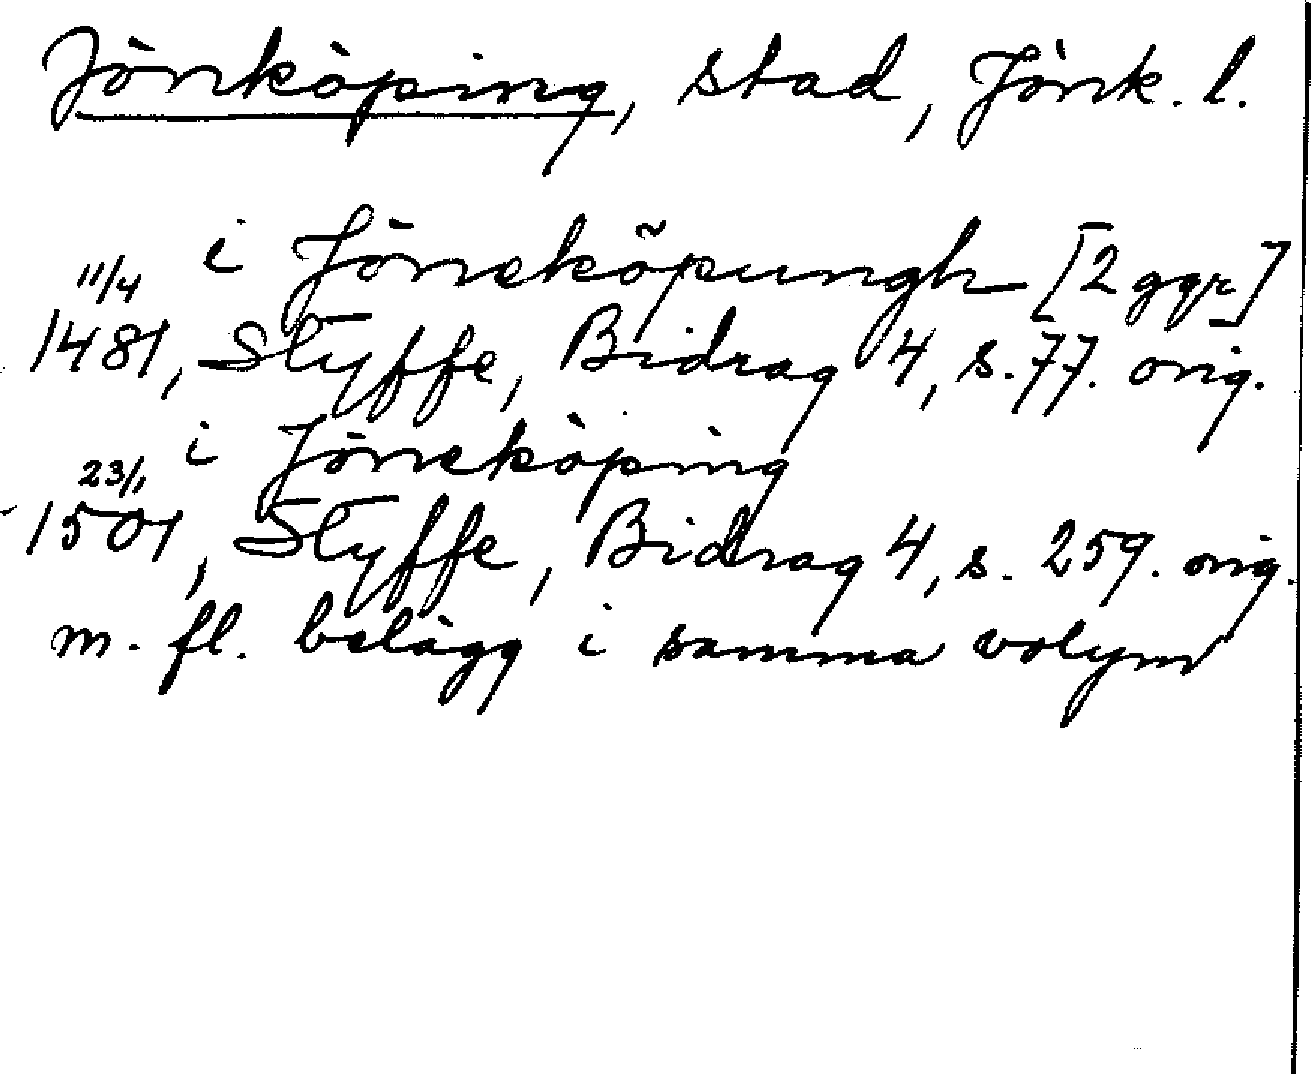 Jönköping, stad, Jönk. l.
i Jöneköpungh [2 ggr]
11/4 1481, Styffe, Bidrag 4, s. 77. orig.
i Jöneköping
23/1 1501, Styffe, Bidrag 4, s. 259. orig.
m. fl. belägg i samma volym